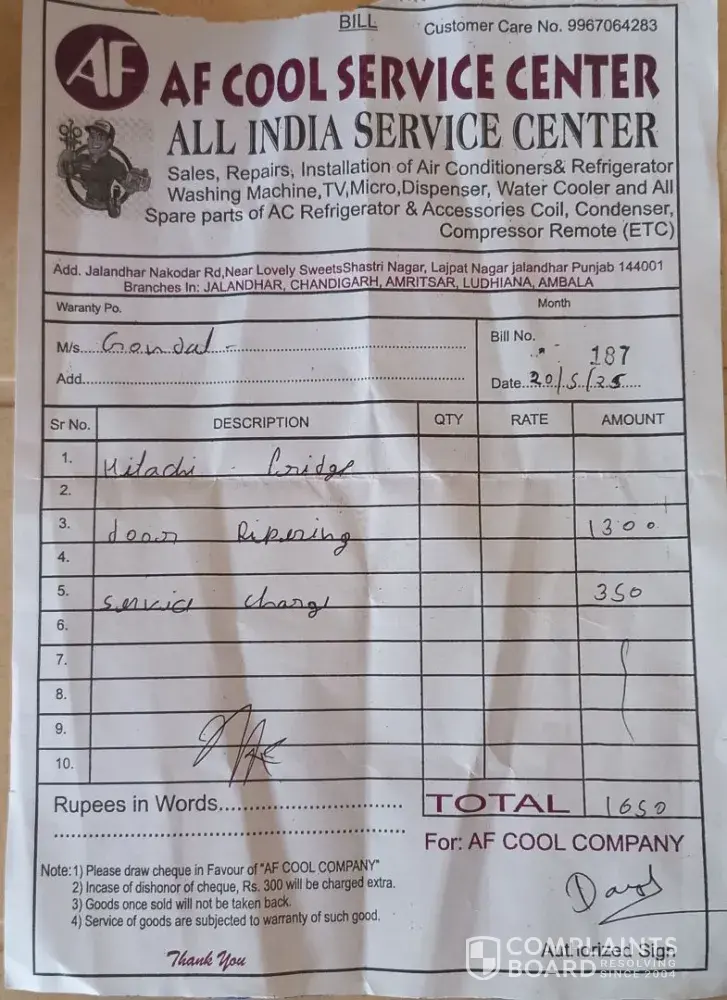 BILL
Customer Care No. 9967064283
AF
AF COOL SERVICE CENTER
ALL INDIA SERVICE CENTER
Sales, Repairs, Installation of Air Conditioners& Refrigerator
Washing Machine,TV,Micro,Dispenser, Water Cooler and All
Spare parts of AC Refrigerator & Accessories Coil, Condenser,
Compressor Remote (ETC)
Add. Jalandhar Nakodar Rd,Near Lovely SweetsShastri Nagar, Lajpat Nagar jalandhar Punjab 144001
Branches In: JALANDHAR, CHANDIGARH, AMRITSAR, LUDHIANA, AMBALA
Warranty Po. Month
M/s....Gondal-
Bill No. 187
Add.
Date..20/5/25
Sr No. DESCRIPTION QTY RATE AMOUNT
1. Hitachi - fridge
2.
3. door Ripering 1300
4.
5. service charge 350
6.
7.
8.
9.
10.
Rupees in Words
TOTAL 1650
For: AF COOL COMPANY
Note: 1) Please draw cheque in Favour of "AF COOL COMPANY"
2) Incase of dishonor of cheque, Rs. 300 will be charged extra.
3) Goods once sold will not be taken back.
4) Service of goods are subjected to warranty of such good.
Authorized Sign
Thank You
COMPLAINTS
BOARD RESOLVING SINCE 2004